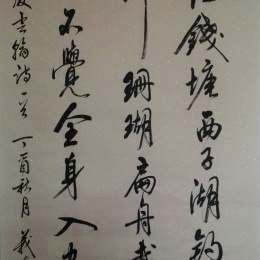 錢塘西子湖釣
珊瑚扁舟載
不覺全身入
雲翰詩一首 丁酉秋月 義